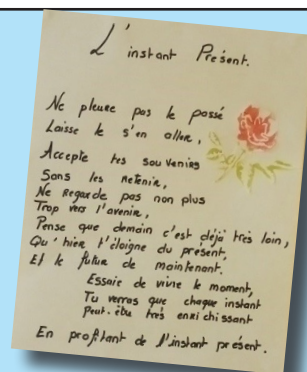 L'instant Présent.
Ne pleure pas le passé
Laisse le s'en aller,
Accepte tes souvenirs
Sans les retenir,
Ne regarde pas non plus
Trop vers l'avenir,
Pense que demain c'est déjà très loin,
Qu'hier t'éloigne du présent,
Et le futur de maintenant.
Essaie de vivre le moment,
Tu verras que chaque instant
Peut-être très enrichissant
En profitant de l'instant présent.